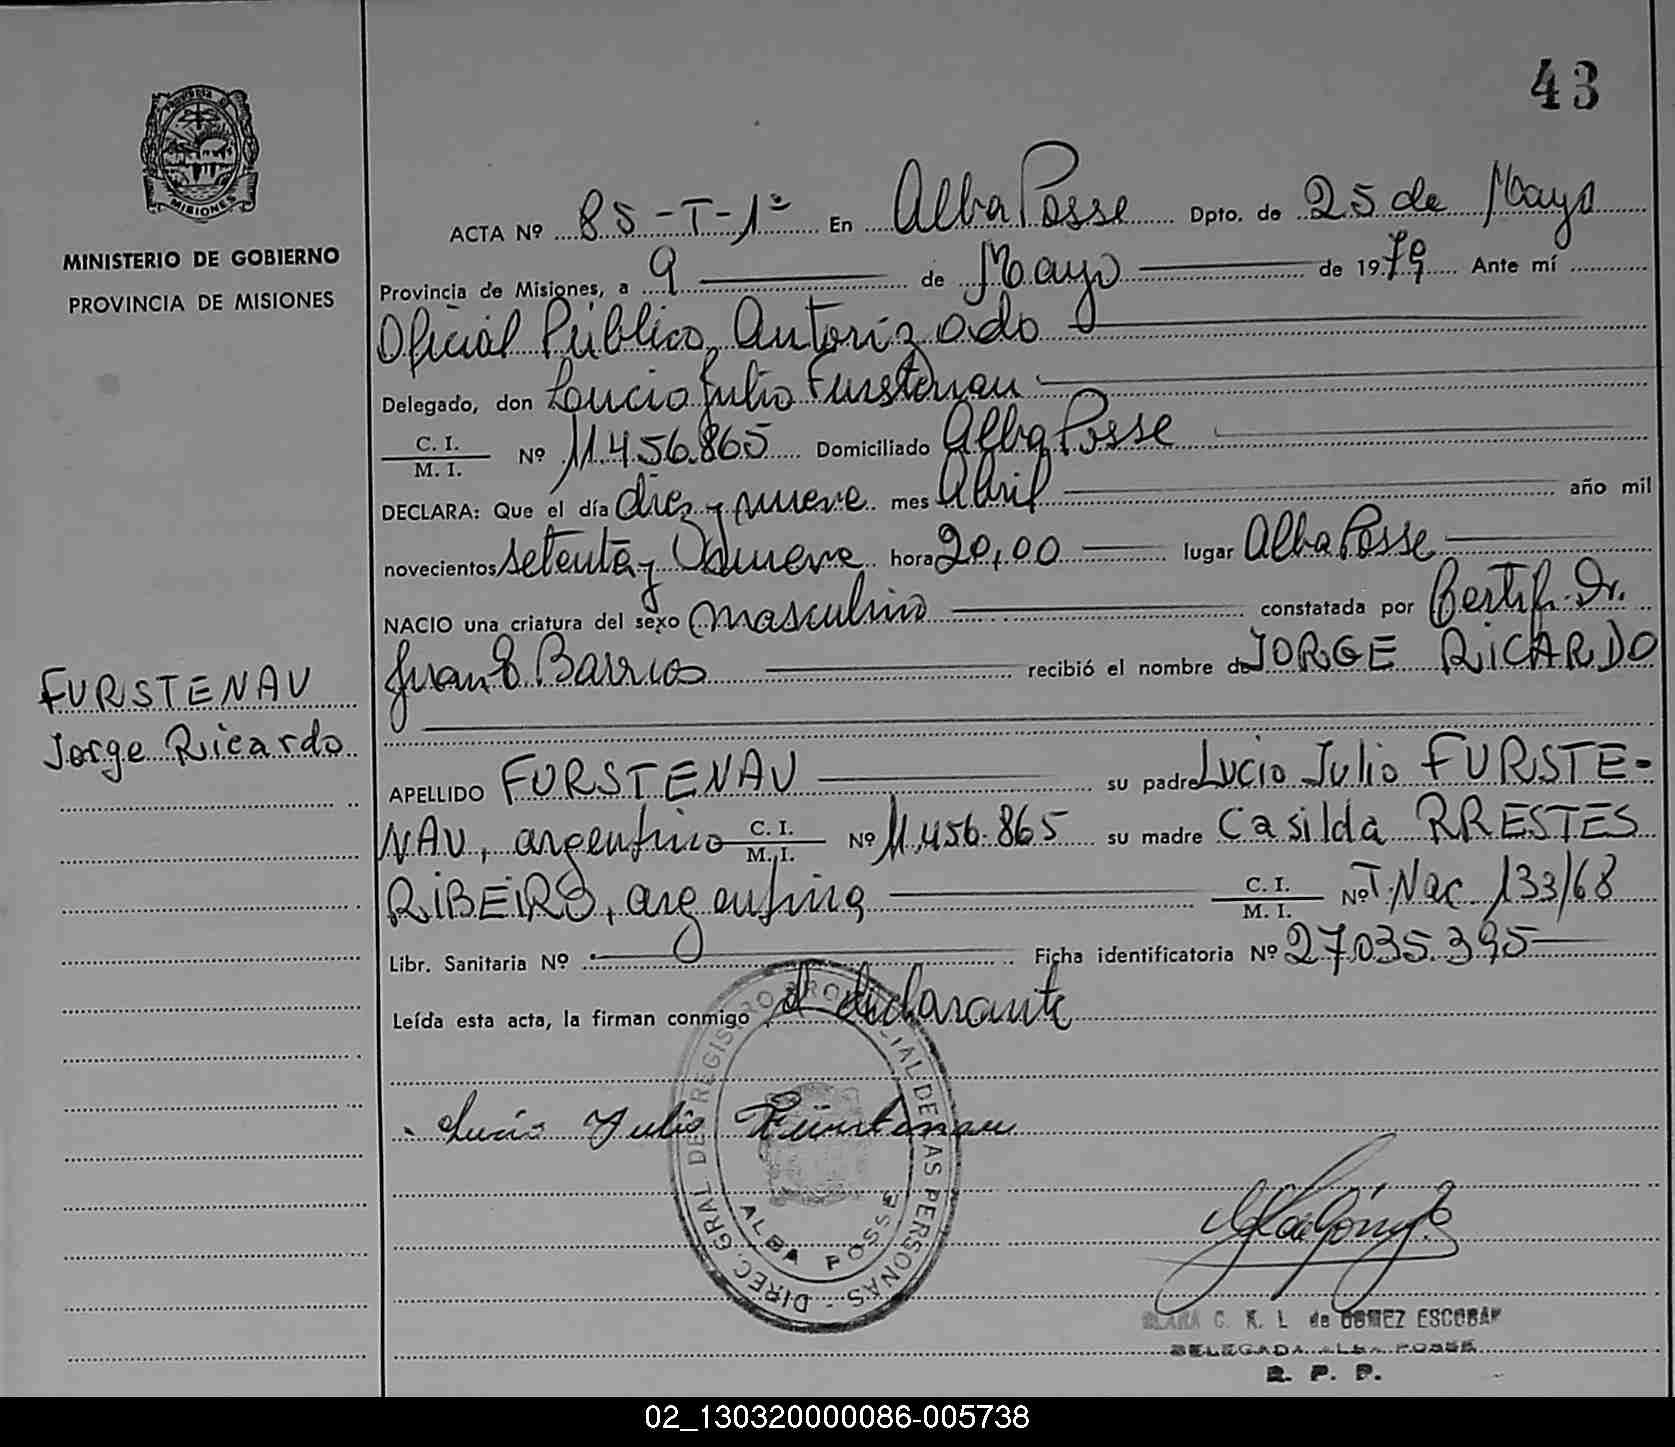 43
PROVINCIA DE
MISIONES
MINISTERIO DE GOBIERNO
PROVINCIA DE MISIONES
FURSTENAU
Jorge Ricardo
ACTA Nº 85-T-1ª En Alba Posse Dpto. de 25 de Mayo
Provincia de Misiones, a 9 de Mayo de 1979 Ante mí
Oficial Público Autorizado
Delegado, don Lucio Julio Furstenau
C. I.
M. I. Nº 11.456.865 Domiciliado Alba Posse
DECLARA: Que el día diez y nueve mes Abril año mil
novecientos setenta y nueve hora 20,00 lugar Alba Posse
NACIO una criatura del sexo masculino constatada por Certif. Dr.
Juan Barrios recibió el nombre de JORGE RICARDO
APELLIDO FURSTENAU su padre Lucio Julio FURSTE-
NAU, argentino C. I. M. I. Nº 11.456.865 su madre Casilda RRESTES
RIBEIRO, argentina C. I. M. I. Nº T. Nac 133/68
Libr. Sanitaria Nº Ficha identificatoria Nº 27.035.395
Leída esta acta, la firman conmigo el declarante
Lucio Julio Fürstenau
DIREC. GRAL DE REGISTRO PROVINCIAL DE LAS PERSONAS -
ALBA POSSE
CLARA C. K. L de GOMEZ ESCOBAR
DELEGADA ALBA POSSE
R. P. P.
02_130320000086-005738